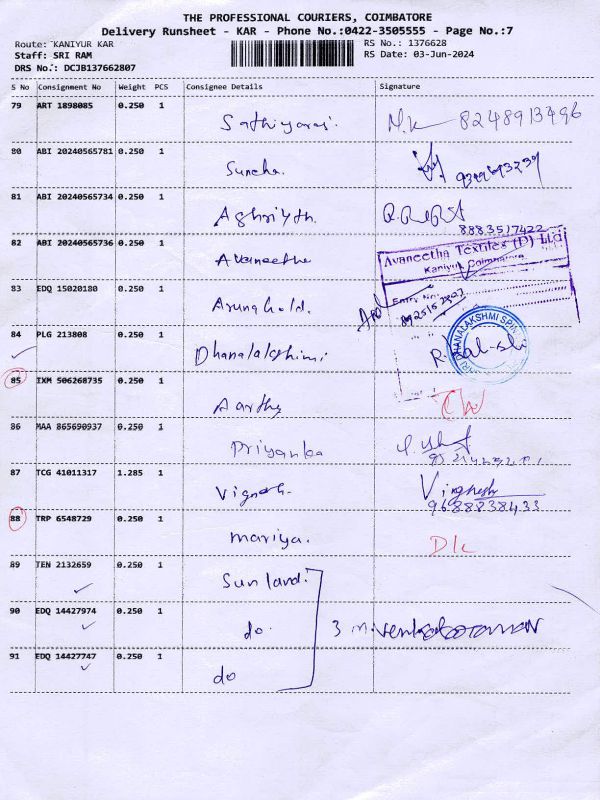 THE PROFESSIONAL COURIERS, COIMBATORE
Delivery Runsheet - KAR - Phone No.:0422-3505555 - Page No.:7
Route: KANIYUR KAR RS No.: 1376628
Staff: SRI RAM RS Date: 03-Jun-2024
DRS No.: DCJB137662807
S No Consignment No Weight PCS Consignee Details Signature
79 ART 1898085 0.250 1 Sathiyaraj. 8248913496
80 ABI 20240565781 0.250 1
81 ABI 20240565734 0.250 1
8883517422
82 ABI 20240565736 0.250 1 Avaneetha
Avaneetha Textiles (P) Ltd
Kaniyur, Coimbatore
83 EDQ 15020180 0.250 1 Entry No:
84 PLG 213808 0.250 1 Dhanalakshimi
85 IXM 506268735 0.250 1 Aarthy
86 MAA 865690937 0.250 1 Priyanka
87 TCG 41011317 1.285 1 Vignesh. Vignesh
9688838433
88 TRP 6548729 0.250 1 Mariya. D/c
89 TEN 2132659 0.250 1 Sunland.
90 EDQ 14427974 0.250 1 do. 3
91 EDQ 14427747 0.250 1 do